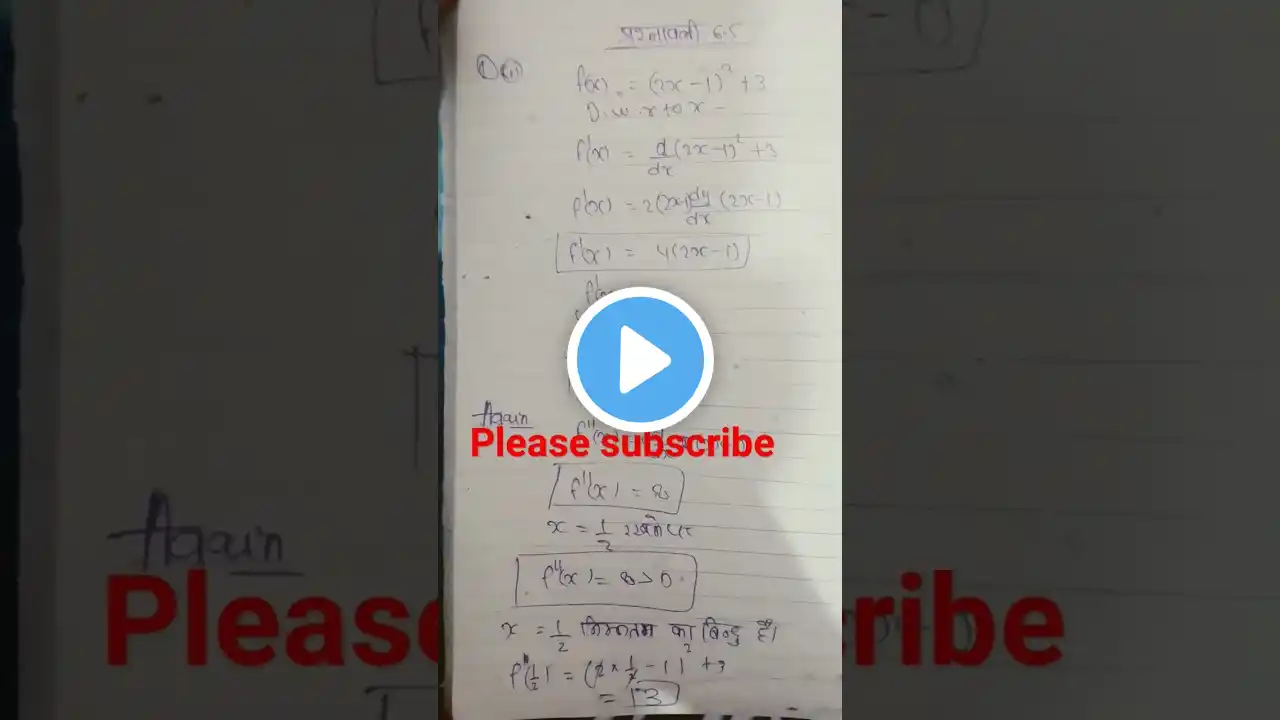 प्रश्नावली 6.5
① (i) f(x) = (2x-1)² + 3
D.w.r to x -
f'(x) = d/dx (2x-1)² + 3
f'(x) = 2(2x-1) dy/dx (2x-1)
f'(x) = 4(2x-1)
Again
Please subscribe
f''(x) = 8
x = 1/2 रखने पर
f''(x) = 8 > 0
x = 1/2 निम्नतम का बिन्दु है।
f''(1/2) = (2 × 1/2 - 1)² + 3
= 3
Again